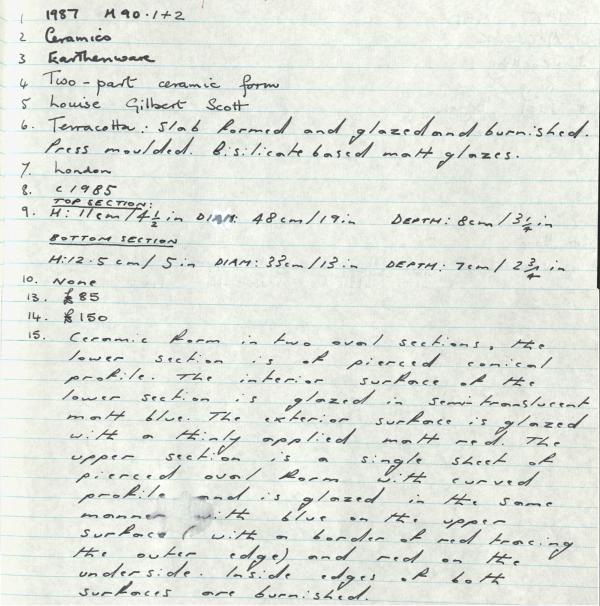 1 1987 M90.1+2
2 Ceramics
3 Earthenware
4 Two-part ceramic form
5 Louise Gilbert Scott
6. Terracotta: Slab formed and glazed and burnished.
Press moulded. Bisilicate based matt glazes.
7. London
8. c1985
TOP SECTION:
9. H: 11cm/4½in DIAM: 48cm/19in DEPTH: 8cm/3¼in
BOTTOM SECTION
H:12.5cm/5in DIAM: 33cm/13in DEPTH: 7cm/2¾in
10. None
13. £85
14. £150
15. Ceramic form in two oval sections, the
lower section is of pierced conical
profile. The interior surface of the
lower section is glazed in semitranslucent
matt blue. The exterior surface is glazed
with a thinly applied matt red. The
upper section is a single sheet of
pierced oval form with curved
profile and is glazed in the same
manner with blue on the upper
surface (with a border of red tracing
the outer edge) and red on the
underside. Inside edges of both
surfaces are burnished.